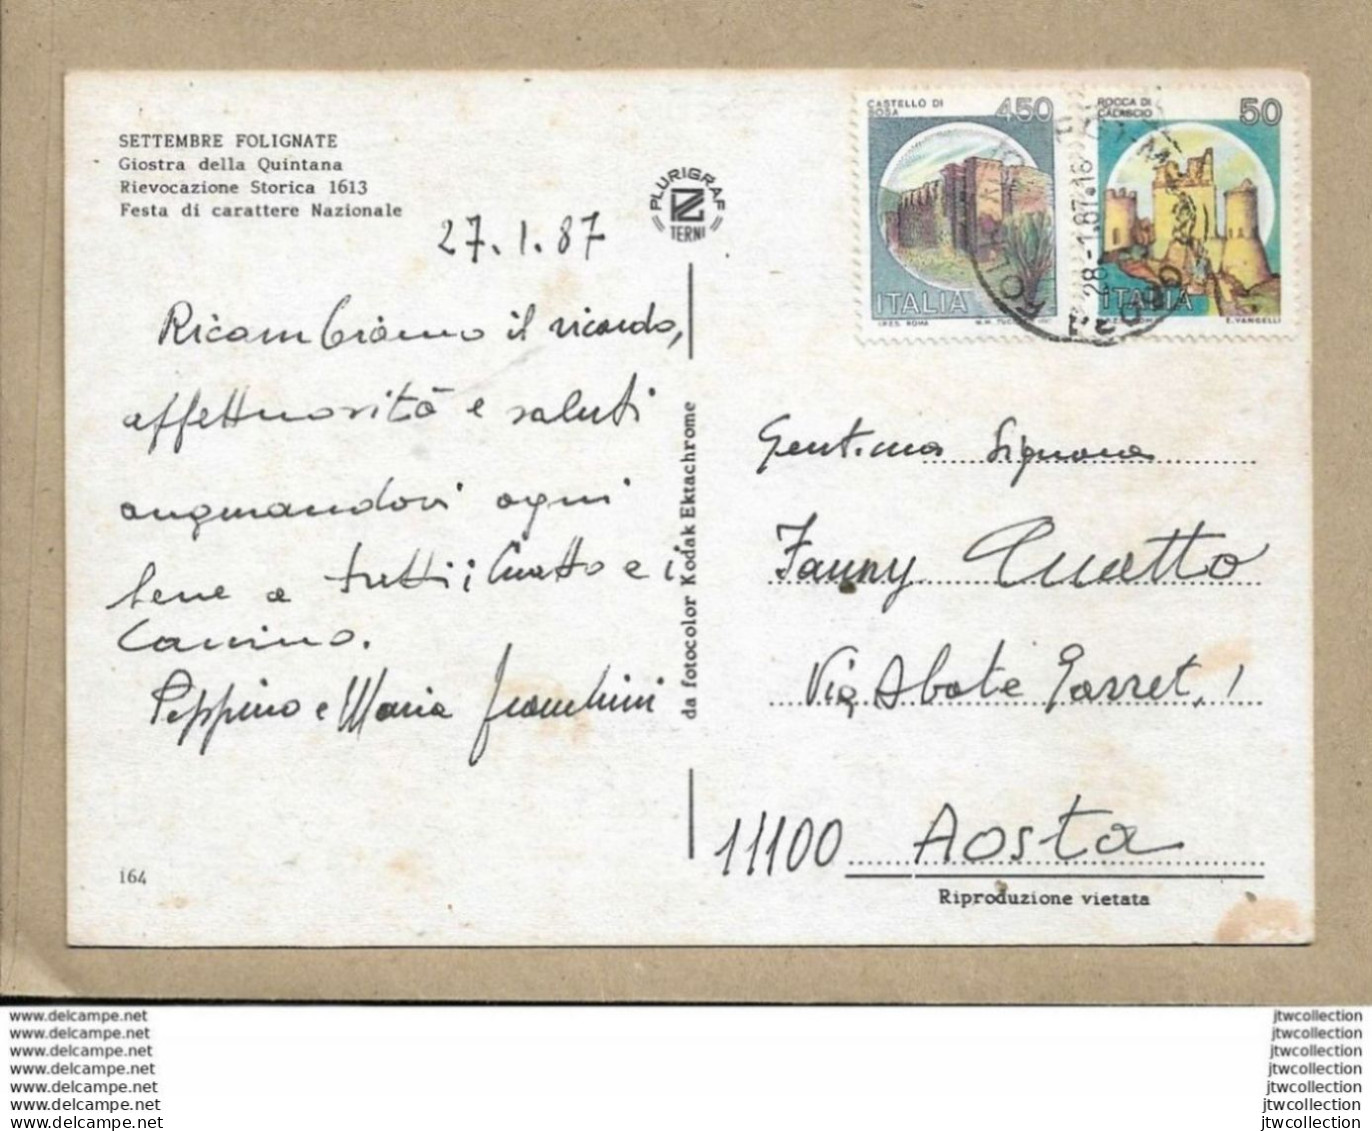 SETTEMBRE FOLIGNATE
Giostra della Quintana
Rievocazione Storica 1613
Festa di carattere Nazionale
27.1.87
Ricambiamo il ricordo,
affettuosità e saluti
augurandovi ogni
bene a tutti i Cuatto e i
Canino.
Peppino e Maria
164
PLURIGRAF
TERNI
da fotocolor Kodak Ektachrome
CASTELLO DI
BOSA
450
ITALIA
I.P.Z.S. ROMA
ROCCA DI
CALASCIO
50
ITALIA
E. VANGELLI
28-1.87.18
Gent.ma Signora
Fanny Cuatto
Via Abate Gorret, 1
11100 Aosta
Riproduzione vietata
www.delcampe.net
www.delcampe.net
www.delcampe.net
www.delcampe.net
www.delcampe.net
www.delcampe.net
www.delcampe.net
jtwcollection
jtwcollection
jtwcollection
jtwcollection
jtwcollection
jtwcollection
jtwcollection